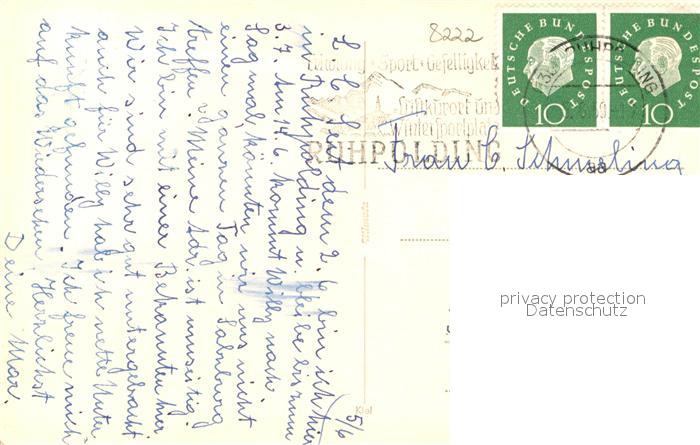 5/6
L. C. Seit dem 2.6 bin ich hier
in Ruhpolding u. bleibe bis zum
3.7. Am 14.6. kommt Willy nach.
Sag mal, könnten wir uns nicht
einen ganzen Tag in Salzburg
treffen? Meine Adr. ist umseitig.
Ich bin mit einer Bekannten hier
Wir sind sehr gut untergebracht
auch für Willy hab ich nette Unter
kunft gefunden. Ich freue mich
auf das Wiedersehen. Herzlichst
Deine
8222
Erholung · Sport · Geselligkeit
Luftkurort und
Wintersportplatz
RUHPOLDING
DEUTSCHE BUNDESPOST
10
DEUTSCHE BUNDESPOST
10
RUHPOLDING
aa
Frau C. Schmeling
Kiel
privacy protection
Datenschutz